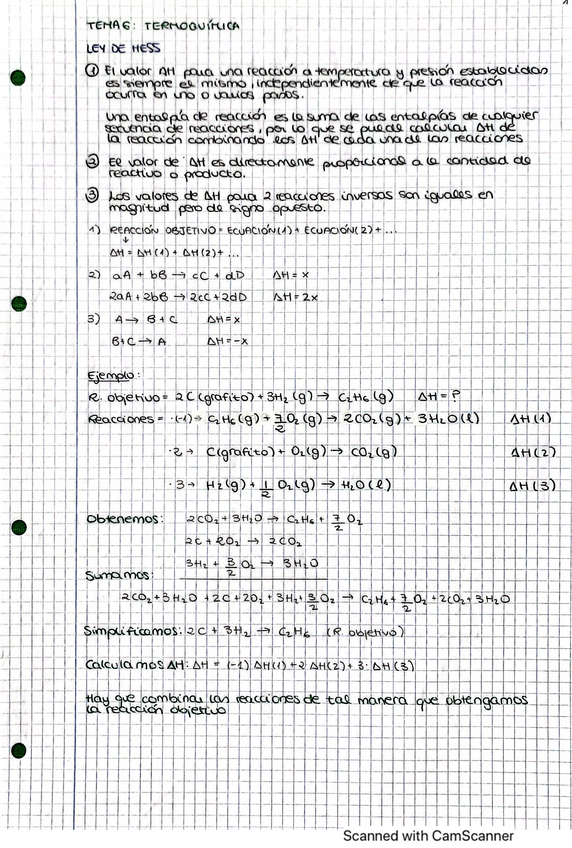 TEMA 6: TERMOQUÍMICA
LEY DE HESS
① El valor ΔH para una reacción a temperatura y presión establecidas
es siempre el mismo, independientemente de que la reacción
ocurra en uno o varios pasos.
Una entalpía de reacción es la suma de las entalpías de cualquier
secuencia de reacciones, por lo que se puede calcular ΔH de
la reacción combinando los ΔH de cada una de las reacciones
② El valor de ΔH es directamente proporcional a la cantidad de
reactivo o producto.
③ Los valores de ΔH para 2 reacciones inversas son iguales en
magnitud pero de signo opuesto.
1) REACCIÓN OBJETIVO = ECUACIÓN(1) + ECUACIÓN(2) + ...
↓
ΔH = ΔH(1) + ΔH(2) + ...
2) aA + bB → cC + dD ΔH = x
2aA + 2bB → 2cC + 2dD ΔH = 2x
3) A → B + C ΔH = x
B + C → A ΔH = -x
Ejemplo:
R. objetivo = 2C (grafito) + 3H₂ (g) → C₂H₆ (g) ΔH = ?
Reacciones = ·(-1)→ C₂H₆ (g) + 7/2 O₂ (g) → 2CO₂ (g) + 3H₂O (l) ΔH (1)
·2 → C(grafito) + O₂(g) → CO₂(g) ΔH(2)
·3 → H₂(g) + 1/2 O₂(g) → H₂O(l) ΔH(3)
Obtenemos: 2CO₂ + 3H₂O → C₂H₆ + 7/2 O₂
2C + 2O₂ → 2CO₂
3H₂ + 3/2 O₂ → 3H₂O
Sumamos:
2CO₂ + 3H₂O + 2C + 2O₂ + 3H₂ + 3/2 O₂ → C₂H₆ + 7/2 O₂ + 2CO₂ + 3H₂O
Simplificamos: 2C + 3H₂ → C₂H₆ (R. objetivo)
Calculamos ΔH: ΔH = (-1) ΔH(1) + 2 ΔH(2) + 3· ΔH(3)
Hay que combinar las reacciones de tal manera que obtengamos
la reacción objetivo
Scanned with CamScanner